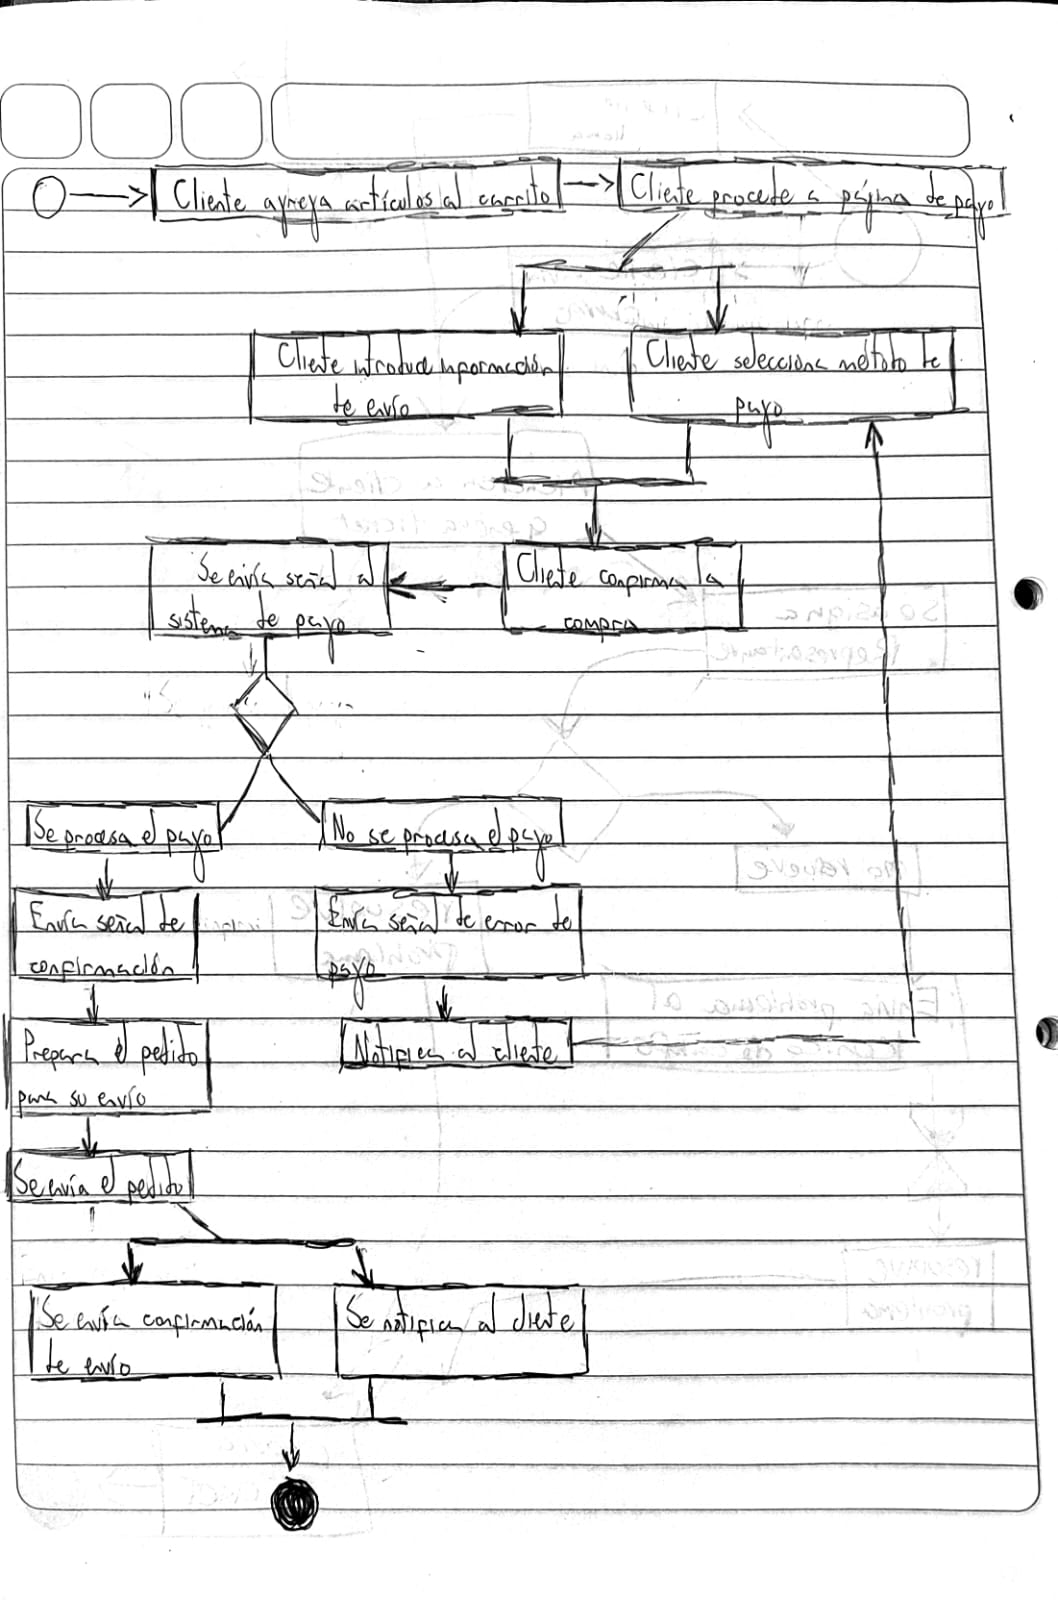 Cliente agrega artículos al carrito
Cliente procede a página de pago
Cliente introduce información
de envío
Cliente selecciona método de
pago
Se envía señal al
sistema de pago
Cliente confirma la
compra
Se procesa el pago
No se procesa el pago
Envía señal de
confirmación
Envía señal de error de
pago
Prepara el pedido
para su envío
Notifica al cliente
Se envía el pedido
Se envía confirmación
de envío
Se notifica al cliente